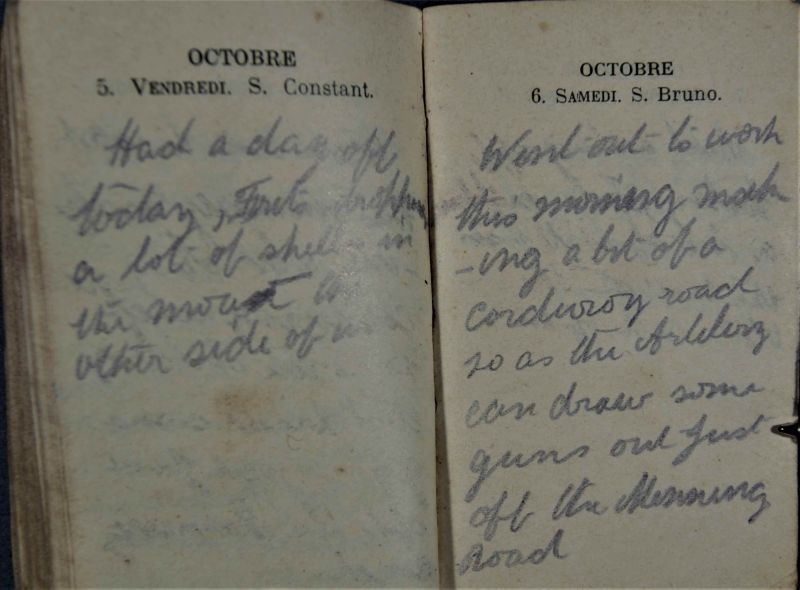 OCTOBRE
5. VENDREDI. S. Constant.
Had a day off
today, Fritz dropping
a lot of shells in
the
other side of us
OCTOBRE
6. SAMEDI. S. Bruno.
Went out to work
this morning mak
-ing a bit of a
corduroy road
so as the Artillery
can draw some
guns out just
off the Menning
Road